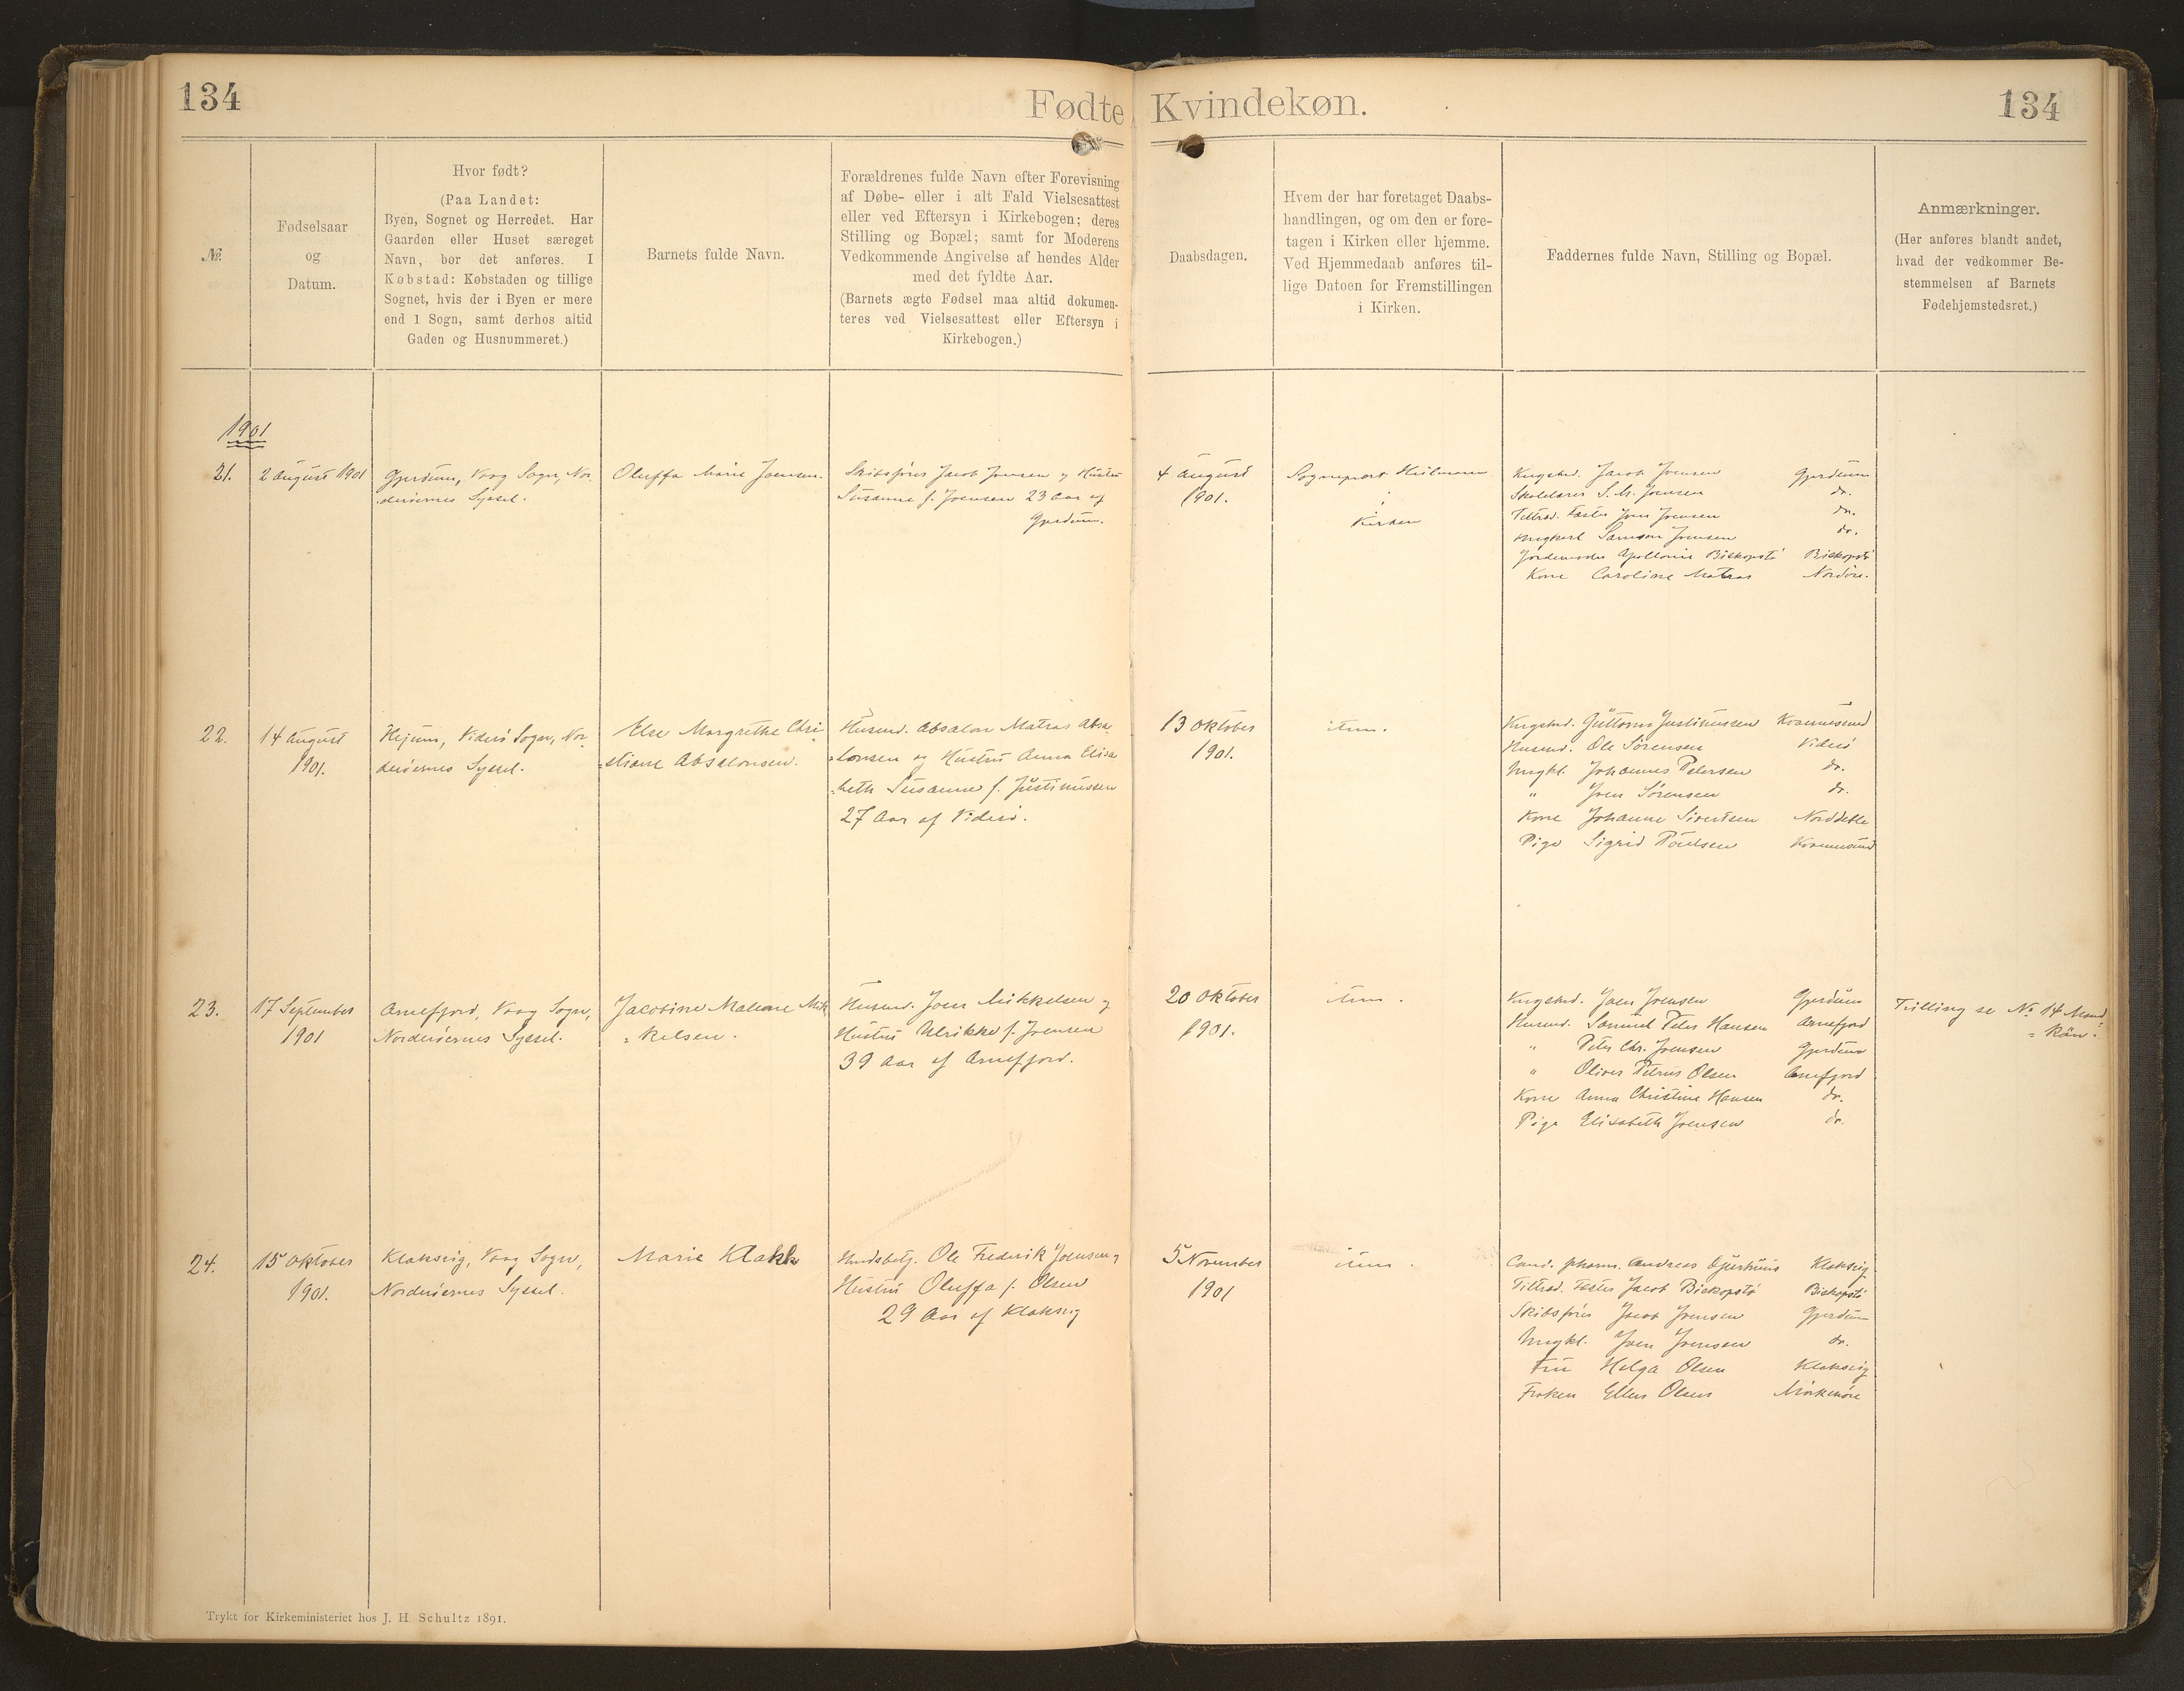 134
Fødte
Kvindekøn.
134
№
Fødselsaar
og
Datum.
Hvor født?
(Paa Landet:
Byen, Sognet og Herredet. Har
Gaarden eller Huset særeget
Navn, bør det anføres. I
Købstad: Købstaden og tillige
Sognet, hvis der i Byen er mere
end 1 Sogn, samt derhos altid
Gaden og Husnummeret.)
Barnets fulde Navn.
Forældrenes fulde Navn efter Forevisning
af Døbe- eller i alt Fald Vielsesattest
eller ved Eftersyn i Kirkebogen; deres
Stilling og Bopæl; samt for Moderens
Vedkommende Angivelse af hendes Alder
med det fyldte Aar.
(Barnets ægte Fødsel maa altid dokumen-
teres ved Vielsesattest eller Eftersyn i
Kirkebogen.)
Daabsdagen.
Hvem der har foretaget Daabs-
handlingen, og om den er fore-
tagen i Kirken eller hjemme.
Ved Hjemmedaab anføres til-
lige Datoen for Fremstillingen
i Kirken.
Faddernes fulde Navn, Stilling og Bopæl.
Anmærkninger.
(Her anføres blandt andet,
hvad der vedkommer Be-
stemmelsen af Barnets
Fødehjemstedsret.)
1901
21.
2 August 1901
Gjerdum, Vaag Sogn, Nor-
derøernes Syssel.
Oluffa Marie Joensen.
Skibsfører Jacob Joensen og Hustru
Susanne f. Joensen 23 Aar af
Gjerdum.
4 August
1901.
Sognepræst Heilmann
i
Kirken
Kngsbd. Jacob Joensen Gjerdum
Skolelærer S. M. Joensen do.
Tiltræd. Fæster Joen Joensen do.
Ungkarl Samson Joensen do.
Jordemoder Apollonia Biskopstø Biskopstø
Kone Caroline Matras Nordøre.
22.
14 August
1901.
Viderø Sogn, Nor-
derøernes Syssel.
Else Margrethe Chri-
stiane Absalonsen.
Husmd. Absalon Matras Absa-
lonsen og Hustru Anna Elisa-
beth Susanne f. Justinussen
27 Aar af Viderø.
13 Oktober
1901.
item.
Kngsbd. Guttorm Justinussen Kvannesund
Husmd. Ole Sørensen Viderø
Ungkl. Johannes Petersen do.
" Joen Sørensen do.
Kone Johanne Sivertsen Norddeble
Pige Sigrid Poulsen Kvannesund
23.
17 September
1901
Arnefjord, Vaag Sogn,
Norderøernes Syssel.
Jacobine Malene Mik-
kelsen.
Husmd. Joen Mikkelsen og
Hustru Ulrikke f. Joensen
39 Aar af Arnefjord.
20 Oktober
1901.
item.
Kngsbd. Joen Joensen Gjerdum
Husmd. Samuel Peter Hansen Arnefjord
" Peter Chr. Joensen Gjerdum
" Oliver Petrus Olsen Arnefjord
Kone Anna Christine Hansen do.
Pige Elisabeth Joensen do.
Tvilling se No 14 Mand-
køn.
24.
15 Oktober
1901.
Klaksvig, Vaag Sogn,
Norderøernes Syssel.
Marie Klakk
Ole Frederik Joensen og
Hustru Oluffa f. Olsen
29 Aar af Klaksvig
5 November
1901
item.
Cand. pharm. Andreas Djurhuus Klaksvig
Tiltræd. Fæster Jacob Biskopstø Biskopstø
Skibsfører Jacob Joensen Gjerdum
Ungkl. Joen Joensen do.
Fru Helga Olsen Klaksvig
Frøken Ellen Olsen Mørkenøre
Trykt for Kirkeministeriet hos J. H. Schultz 1891.